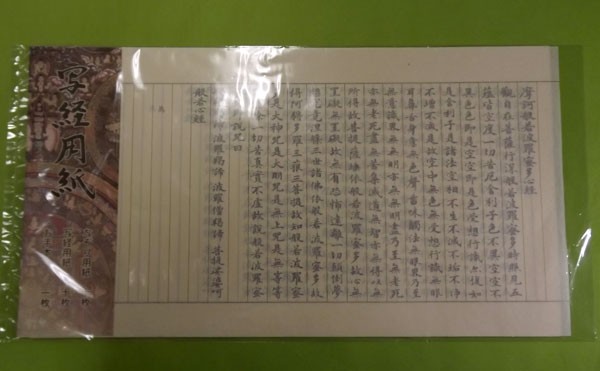 写経用紙
摩訶般若波羅蜜多心經
觀自在菩薩行深般若波羅蜜多時照見五
蘊皆空度一切苦厄舍利子色不異空空不
異色色即是空空即是色受想行識亦復如
是舍利子是諸法空相不生不滅不垢不淨
不增不減是故空中無色無受想行識無眼
耳鼻舌身意無色聲香味觸法無眼界乃至
無意識界無無明亦無無明盡乃至無老死
亦無老死盡無苦集滅道無智亦無得以無
所得故菩提薩埵依般若波羅蜜多故心無
罣礙無罣礙故無有恐怖遠離一切顛倒夢
想究竟涅槃三世諸佛依般若波羅蜜多故
得阿耨多羅三藐三菩提故知般若波羅蜜
多是大神咒是大明咒是無上咒是無等等
咒能除一切苦真實不虛故說般若波羅蜜
即說咒曰
波羅揭諦 波羅僧揭諦 菩提薩婆訶
般若心經
為